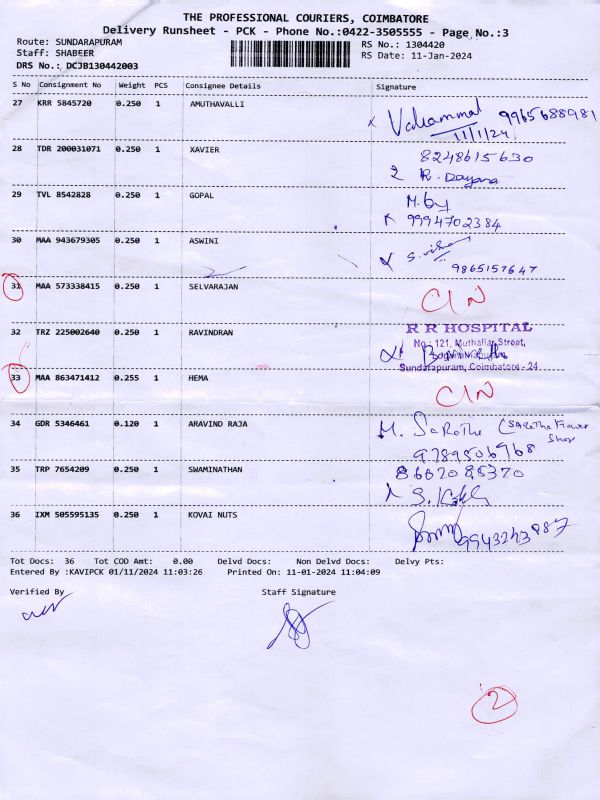 THE PROFESSIONAL COURIERS, COIMBATORE
Delivery Runsheet - PCK - Phone No.:0422-3505555 - Page No.:3
Route: SUNDARAPURAM
RS No.: 1304420
Staff: SHABEER
RS Date: 11-Jan-2024
DRS No.: DCJB130442003
S No Consignment No Weight PCS Consignee Details Signature
27 KRR 5845720 0.250 1 AMUTHAVALLI
9965688981
11/1/24
28 TDR 200031071 0.250 1 XAVIER
8248615630
R. Dayana
29 TVL 8542828 0.250 1 GOPAL
9994702384
30 MAA 943679305 0.250 1 ASWINI
9865157647
31 MAA 573338415 0.250 1 SELVARAJAN
C/N
32 TRZ 225002640 0.250 1 RAVINDRAN
R R HOSPITAL
No: 121, Muthaliar Street,
Sundarapuram, Coimbatore - 24
33 MAA 863471412 0.255 1 HEMA
C/N
34 GDR 5346461 0.120 1 ARAVIND RAJA
M. SaRatha (SaRatha Flower
Shop
9789506968
35 TRP 7654209 0.250 1 SWAMINATHAN
8662085370
36 IXM 505595135 0.250 1 KOVAI NUTS
9943243887
Tot Docs: 36 Tot COD Amt: 0.00 Delvd Docs: Non Delvd Docs: Delvy Pts:
Entered By :KAVIPCK 01/11/2024 11:03:26 Printed On: 11-01-2024 11:04:09
Verified By Staff Signature
2